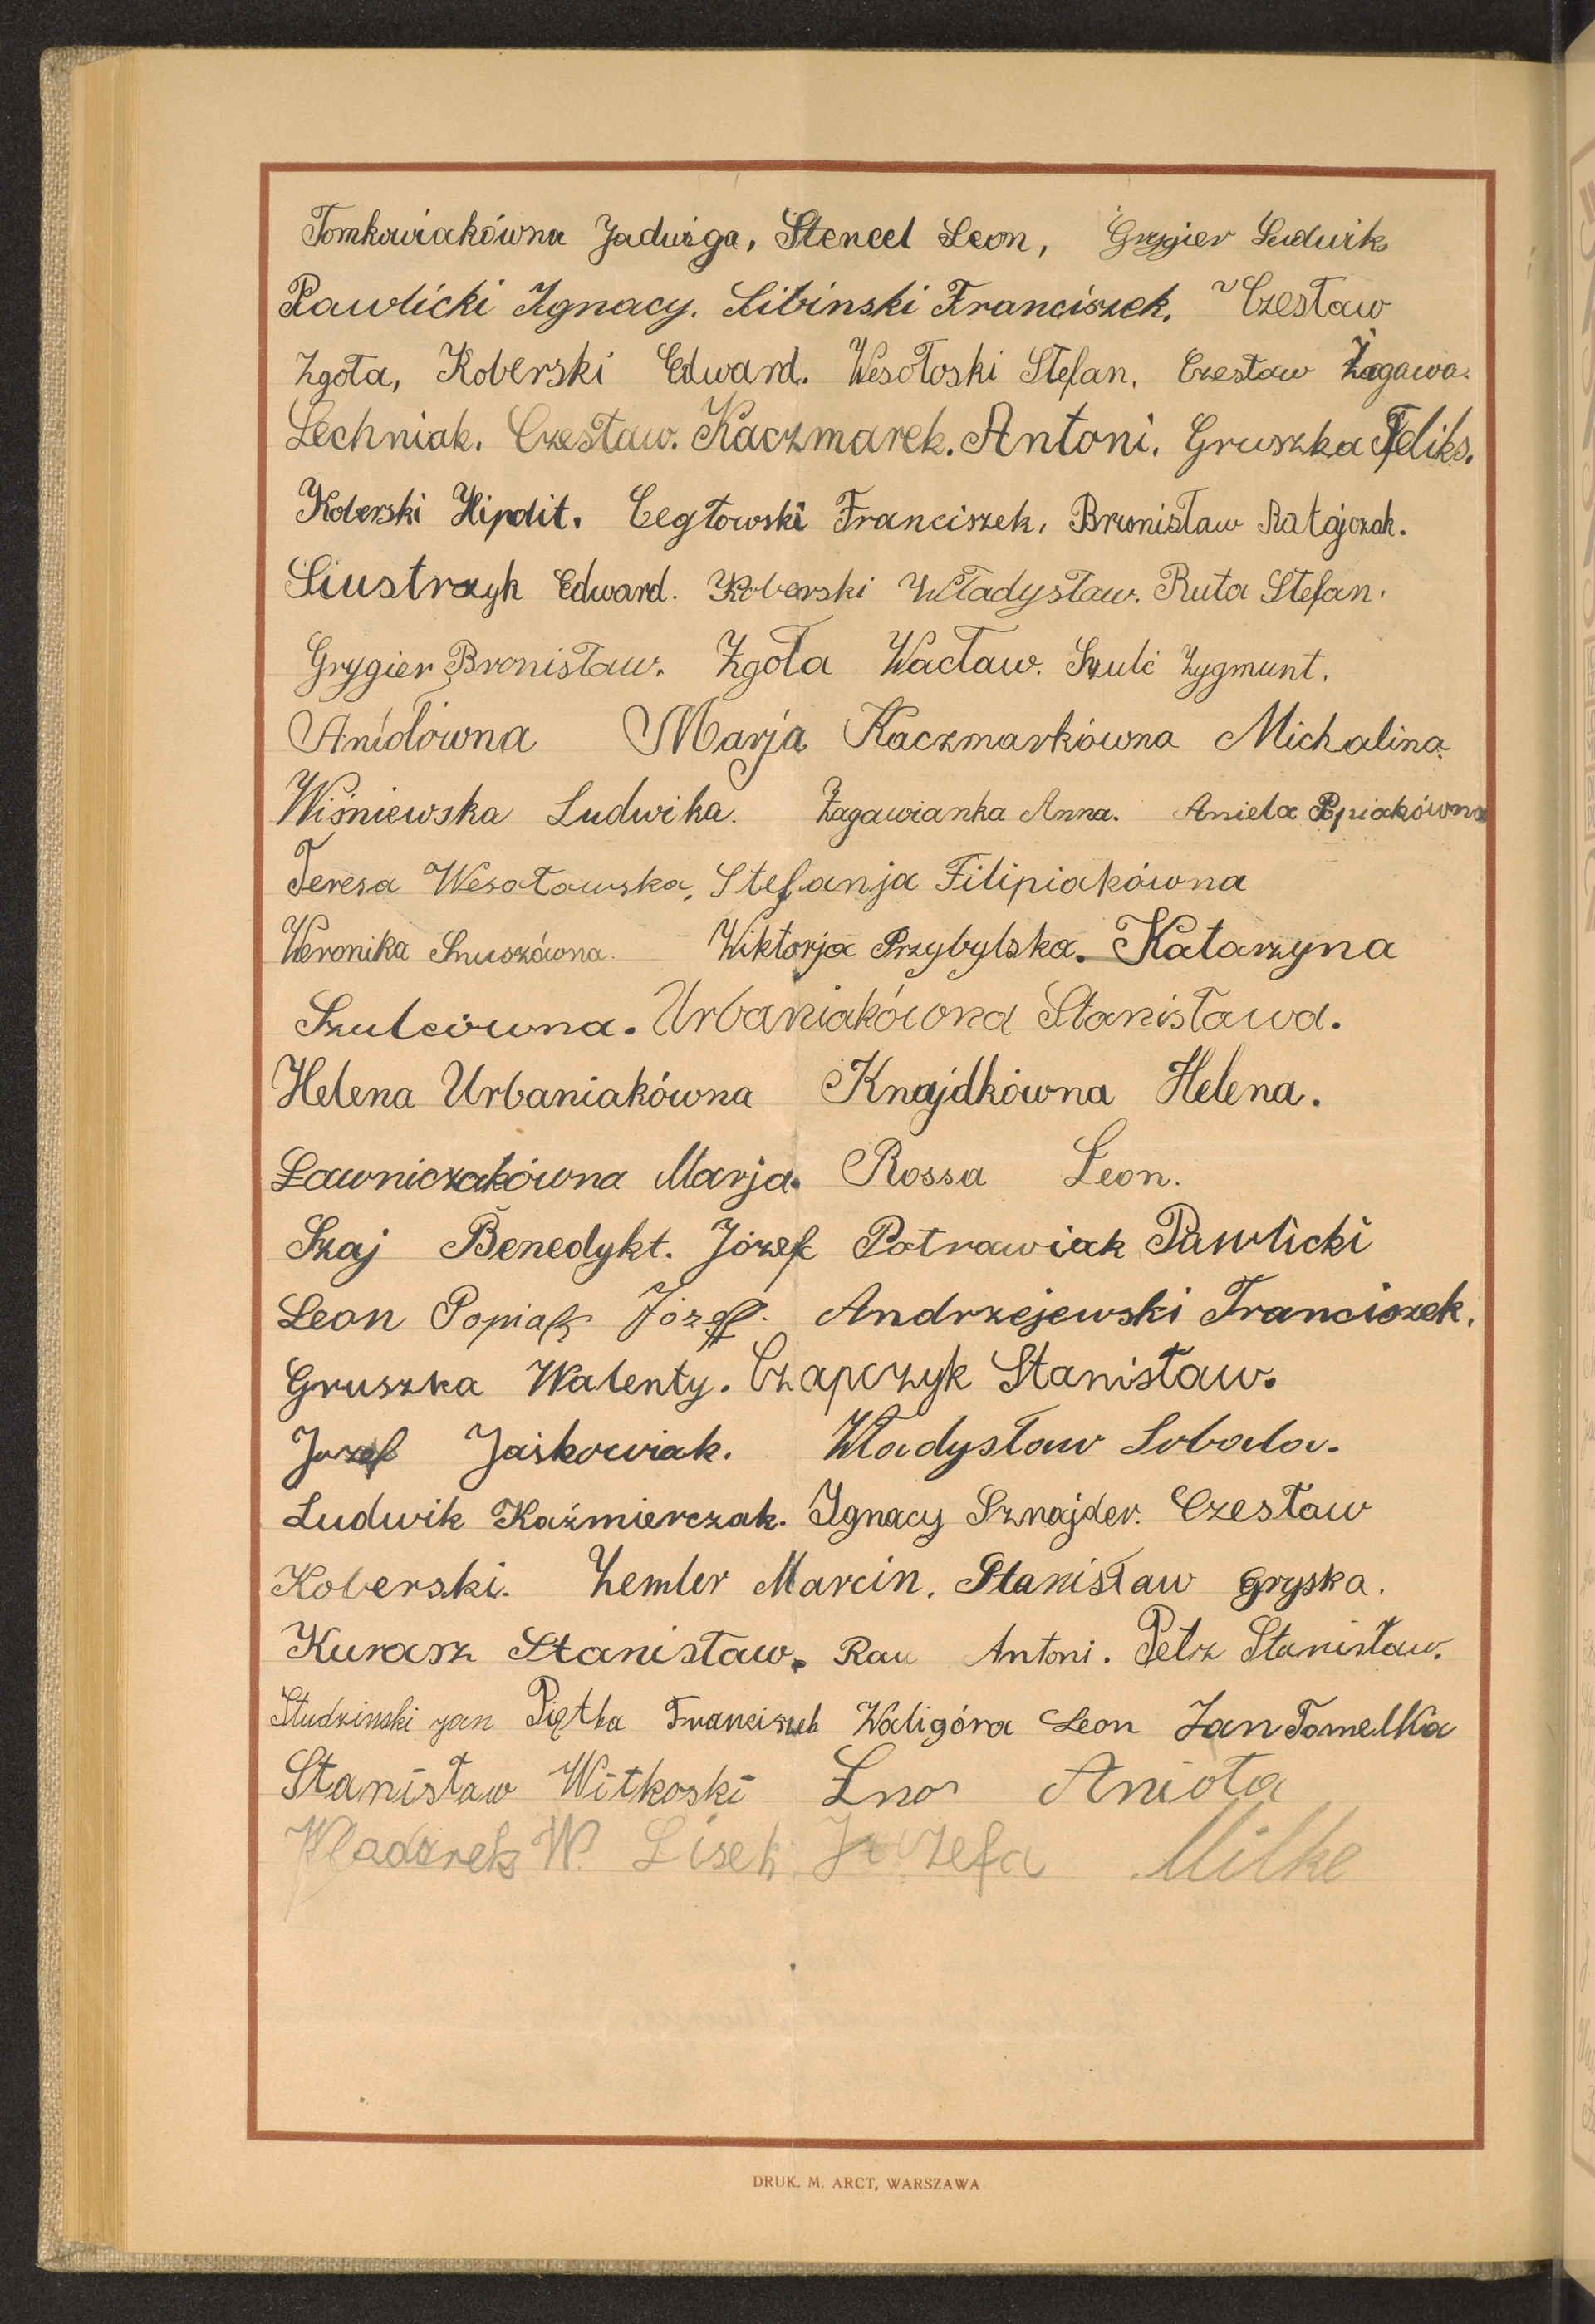 Tomkowiakówna Jadwiga, Stencel Leon, Grygier Ludwik
Pawlicki Ignacy. Libinski Franciszek. Czesław
Zgoła, Koberski Edward. Wesołoski Stefan. Czesław Żagawa.
Lechniak. Czesław. Kaczmarek. Antoni. Gruszka Feliks.
Koberski Hipolit. Cegłowski Franciszek, Bronisław Ratajczak.
Siustrzyk Edward. Koberski Władysław. Ruta Stefan.
Grygier Bronisław. Zgoła Wacław. Szulc Zygmunt.
Aniołówna Marja Kaczmarkówna Michalina
Wiśniewska Ludwika. Żagawianka Anna. Aniela Popiakówna
Teresa Wesołowska, Stefanja Filipiakówna
Weronika Wiktorja Przybylska. Katarzyna
Szulcówna. Urbaniakówna Stanisława.
Helena Urbaniakówna Knajdkówna Helena.
Ławniczakówna Marja. Rossa Leon.
Szaj Benedykt. Józef Potrawiak Pawlicki
Leon Popiak Józef. Andrzejewski Franciszek.
Gruszka Walenty. Czapczyk Stanisław.
Józef Jaśkowiak. Władysław Sobala.
Ludwik Kaźmierczak. Ignacy Sznajder. Czesław
Koberski. Zemler Marcin. Stanisław Gryska.
Kurasz Stanisław. Rau Antoni. Pelz Stanisław.
Studzinski jan Piętka Franciszek Waligóra Leon Jan Tomelka
Stanisław Witkoski Anioła
W. Lisek Józefa Milke
DRUK. M. ARCT, WARSZAWA